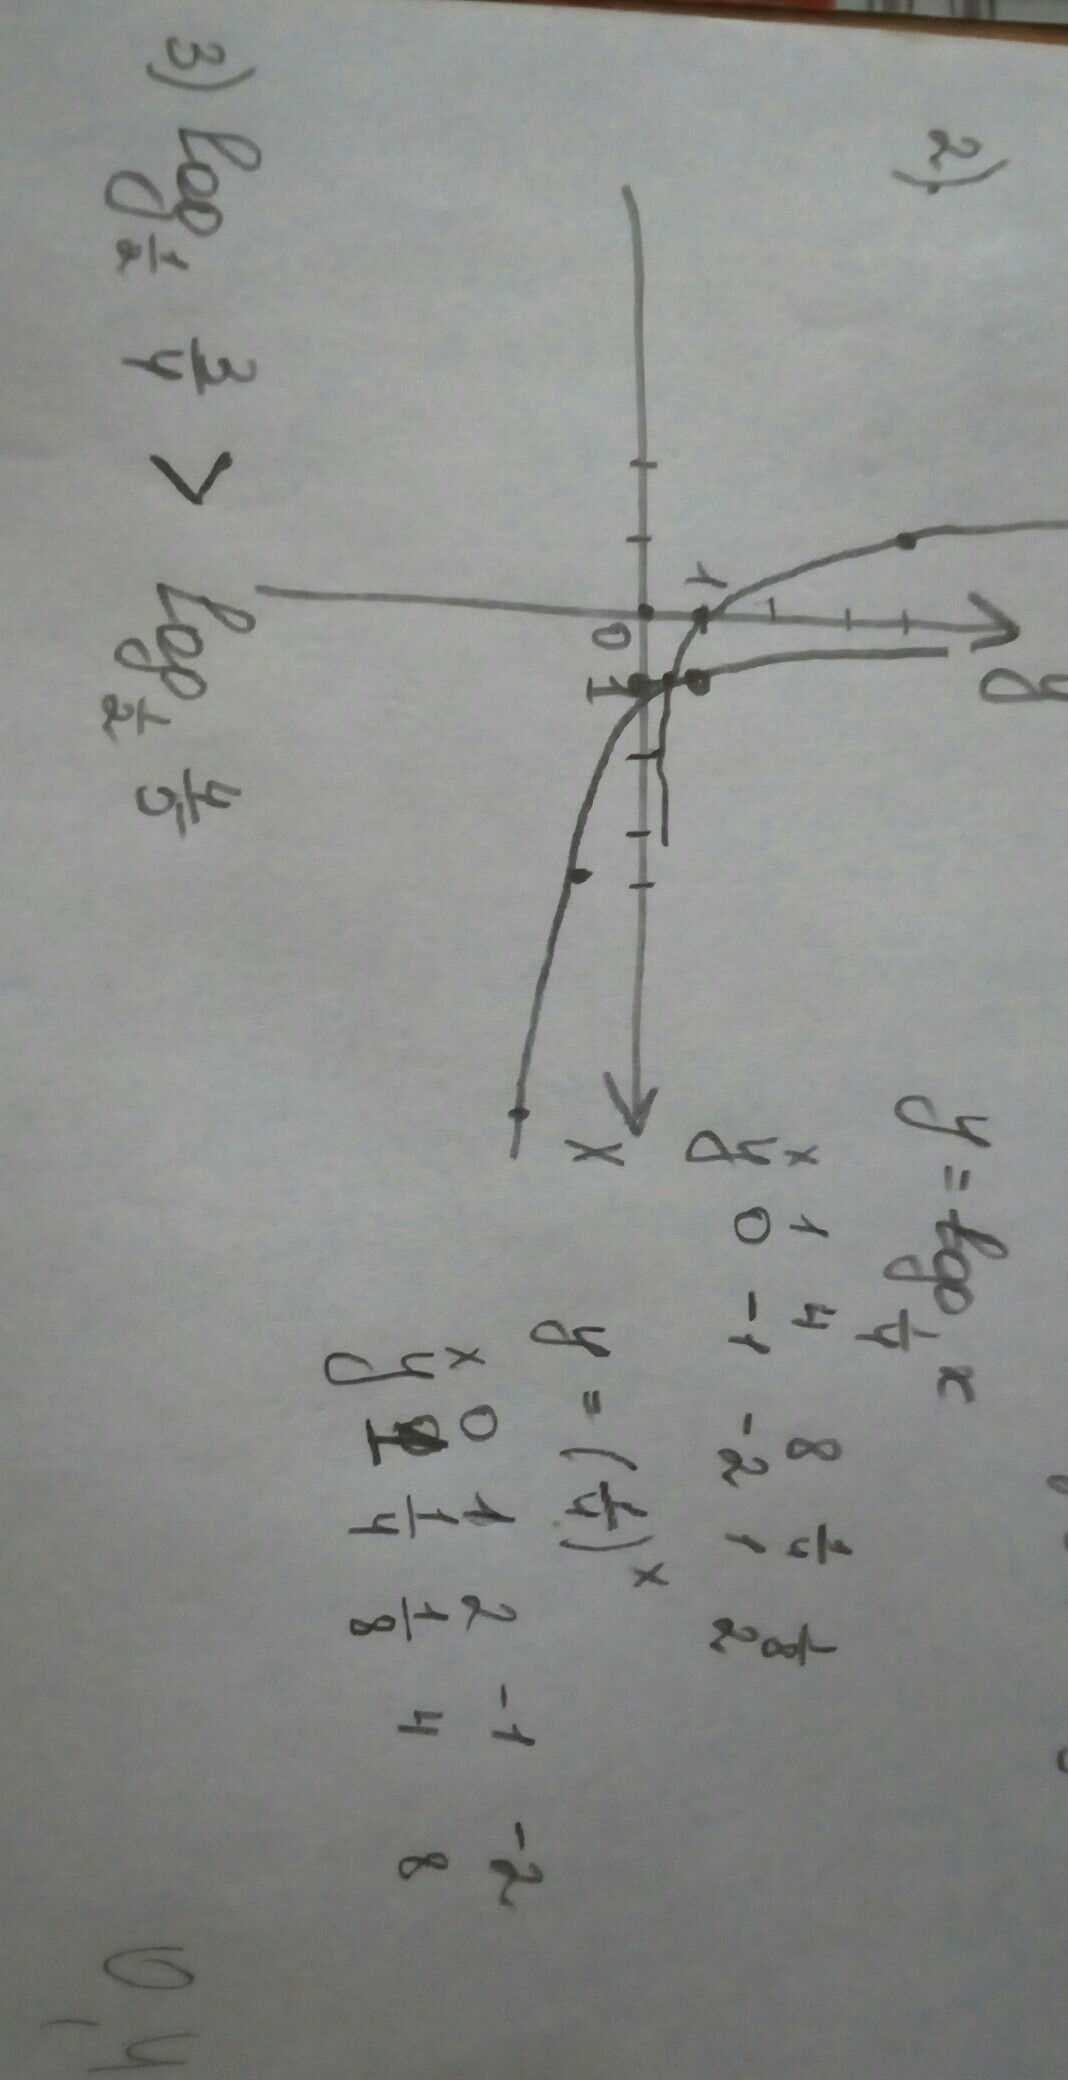 2).
y
1
0
1
x
y = log 1/4 x
x 1 4 8 1/4 1/8
y 0 -1 -2 1 2
y = (1/4)^x
x 0 1 2 -1 -2
y 1 1/4 1/8 4 8
3) log 1/2 3/4 > log 1/2 4/5